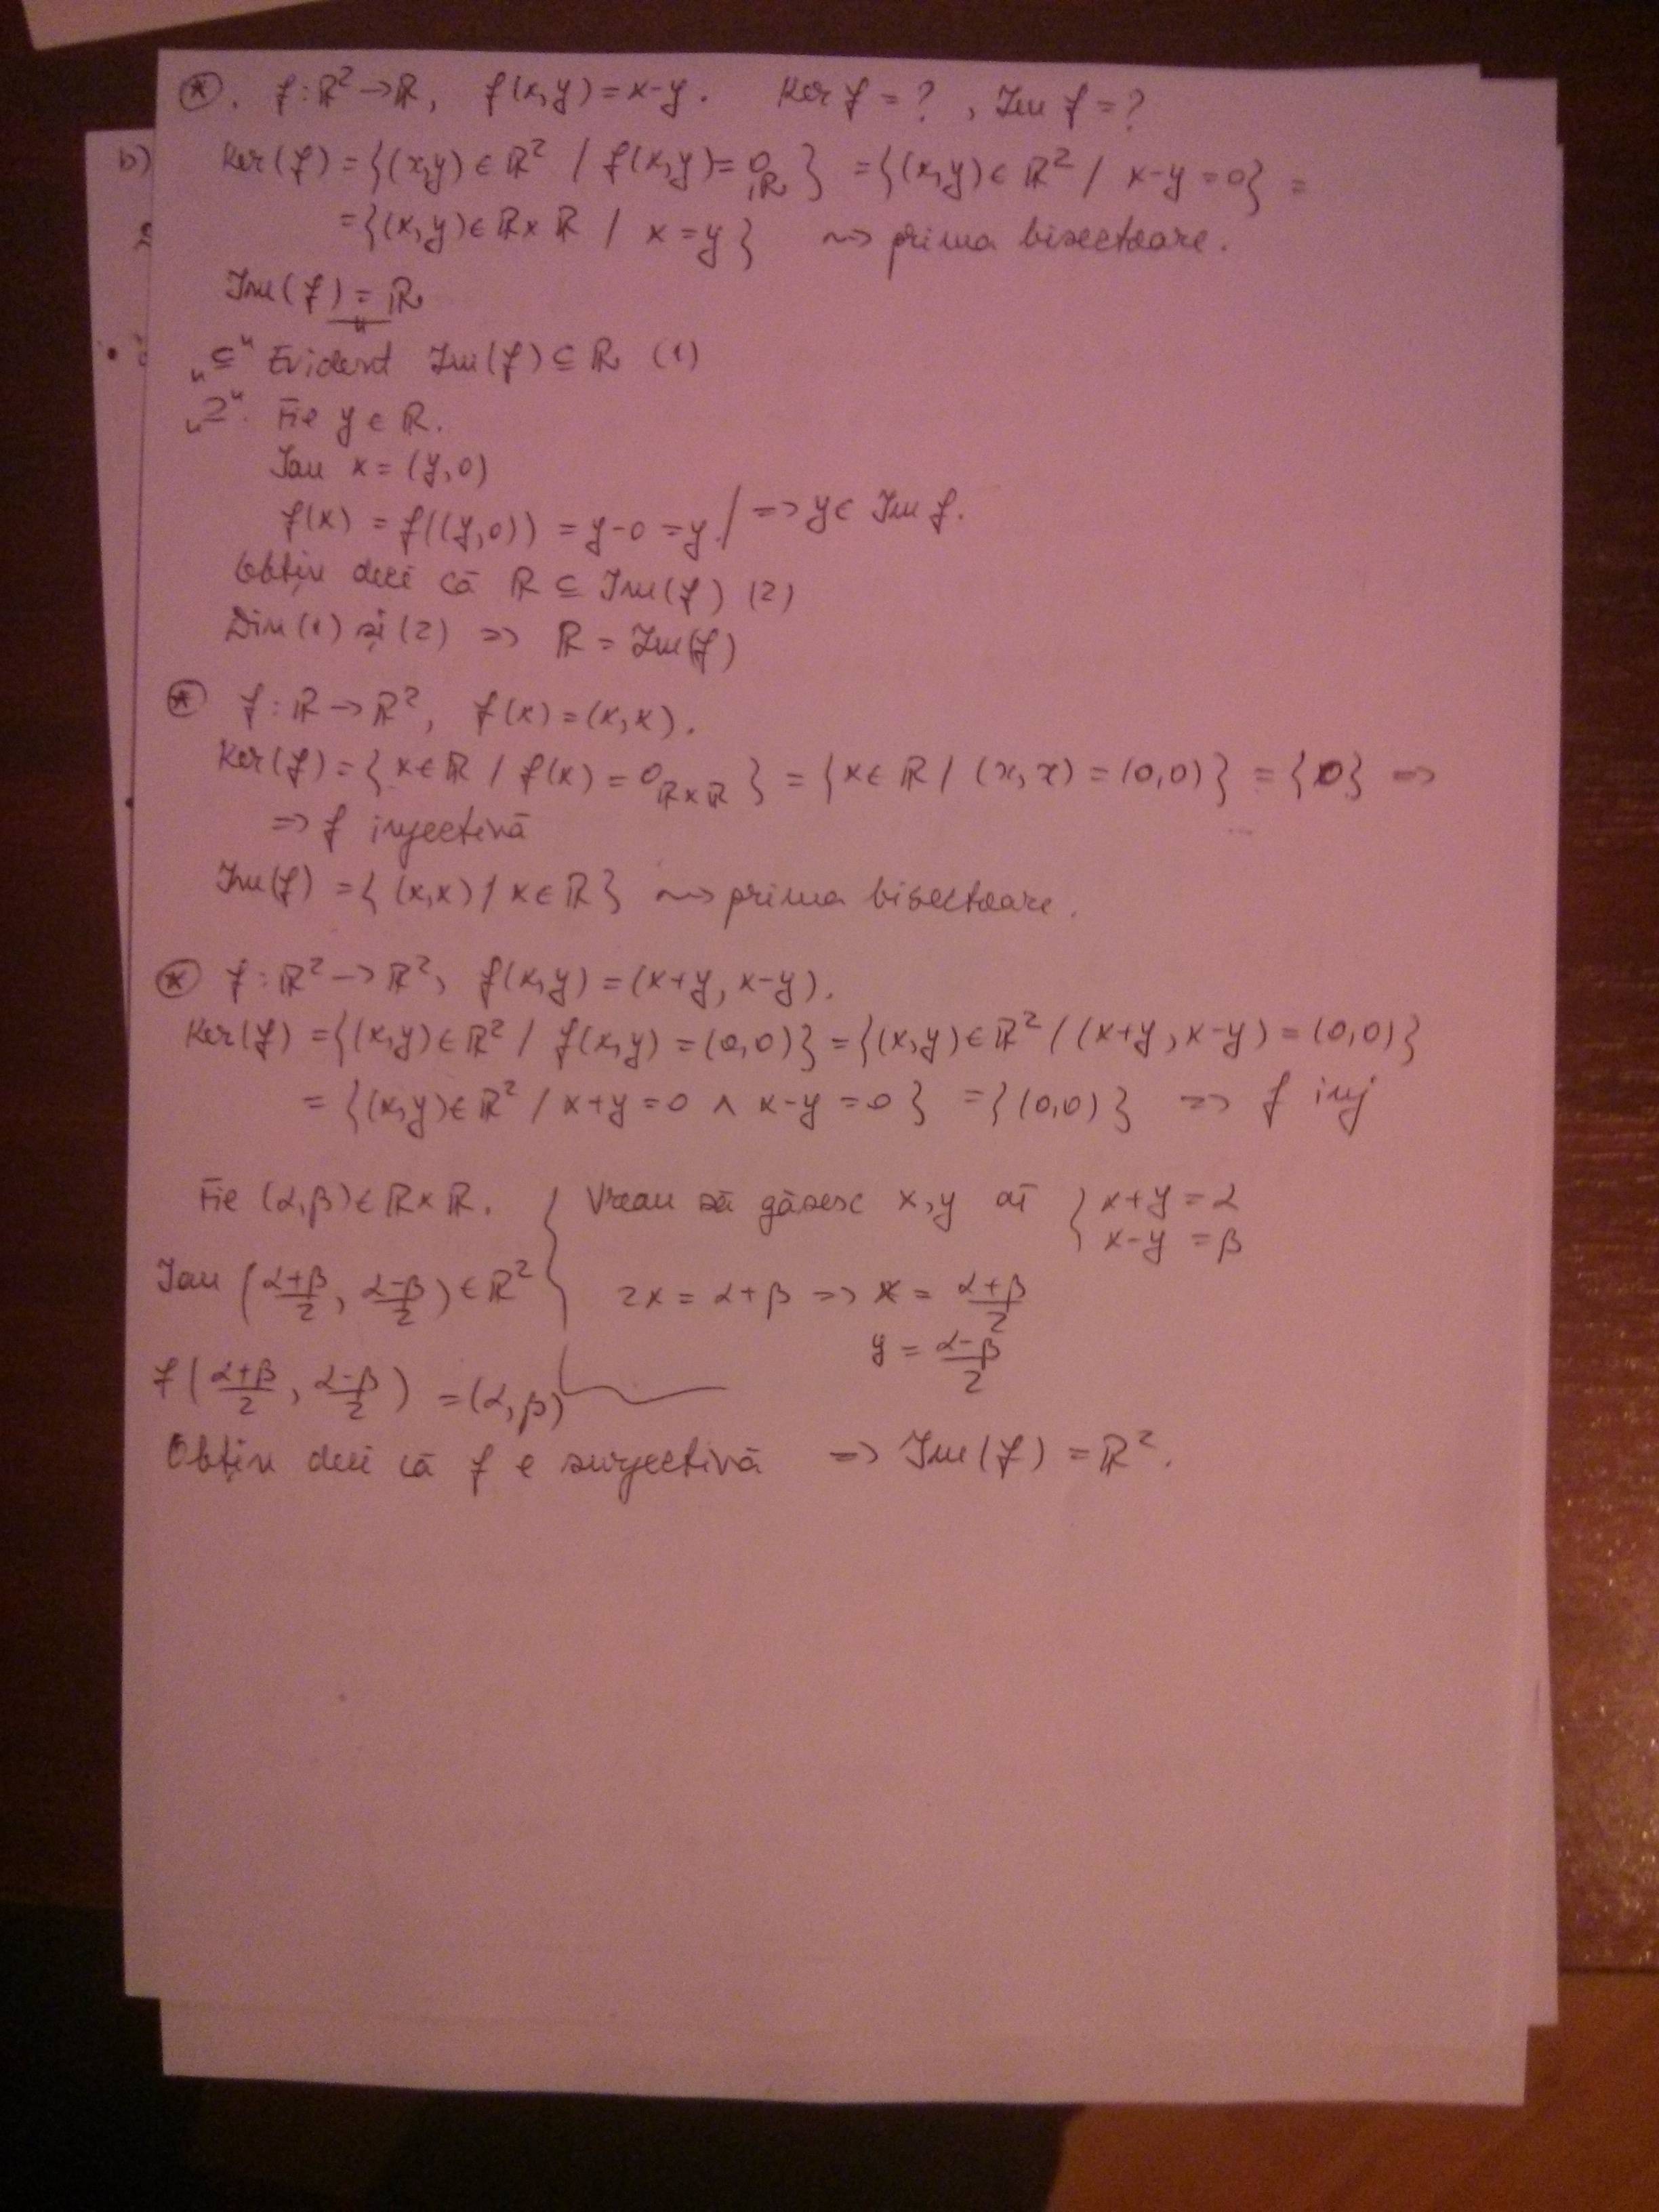 ⊛. f : ℝ² → ℝ, f(x,y) = x-y. Ker f = ? , Im f = ?
Ker(f) = {(x,y) ∈ ℝ² / f(x,y) = 0_ℝ} = {(x,y) ∈ ℝ² / x-y = 0} =
= {(x,y) ∈ ℝ×ℝ / x = y} ⇝ prima bisectoare.
Im(f) = ℝ
„⊆" Evident Im(f) ⊆ ℝ (1)
„⊇". Fie y ∈ ℝ.
Iau x = (y,0)
f(x) = f((y,0)) = y-0 = y. / => y ∈ Im f.
Obțin deci că ℝ ⊆ Im(f) (2)
Din (1) și (2) => ℝ = Im(f)
⊛ f : ℝ → ℝ², f(x) = (x,x).
Ker(f) = {x ∈ ℝ / f(x) = 0_ℝ×ℝ} = {x ∈ ℝ / (x,x) = (0,0)} = {0} =>
=> f injectivă
Im(f) = {(x,x) / x ∈ ℝ} ⇝ prima bisectoare.
⊛ f : ℝ² → ℝ², f(x,y) = (x+y, x-y).
Ker(f) = {(x,y) ∈ ℝ² / f(x,y) = (0,0)} = {(x,y) ∈ ℝ² / (x+y, x-y) = (0,0)}
= {(x,y) ∈ ℝ² / x+y = 0 ∧ x-y = 0} = {(0,0)} => f inj
Fie (α,β) ∈ ℝ×ℝ. Vreau să găsesc x,y aî { x+y = α
x-y = β
Iau (α+β/2, α-β/2) ∈ ℝ² 2x = α+β => x = α+β/2
y = α-β/2
f(α+β/2, α-β/2) = (α,β)
Obțin deci că f e surjectivă => Im(f) = ℝ².
b)